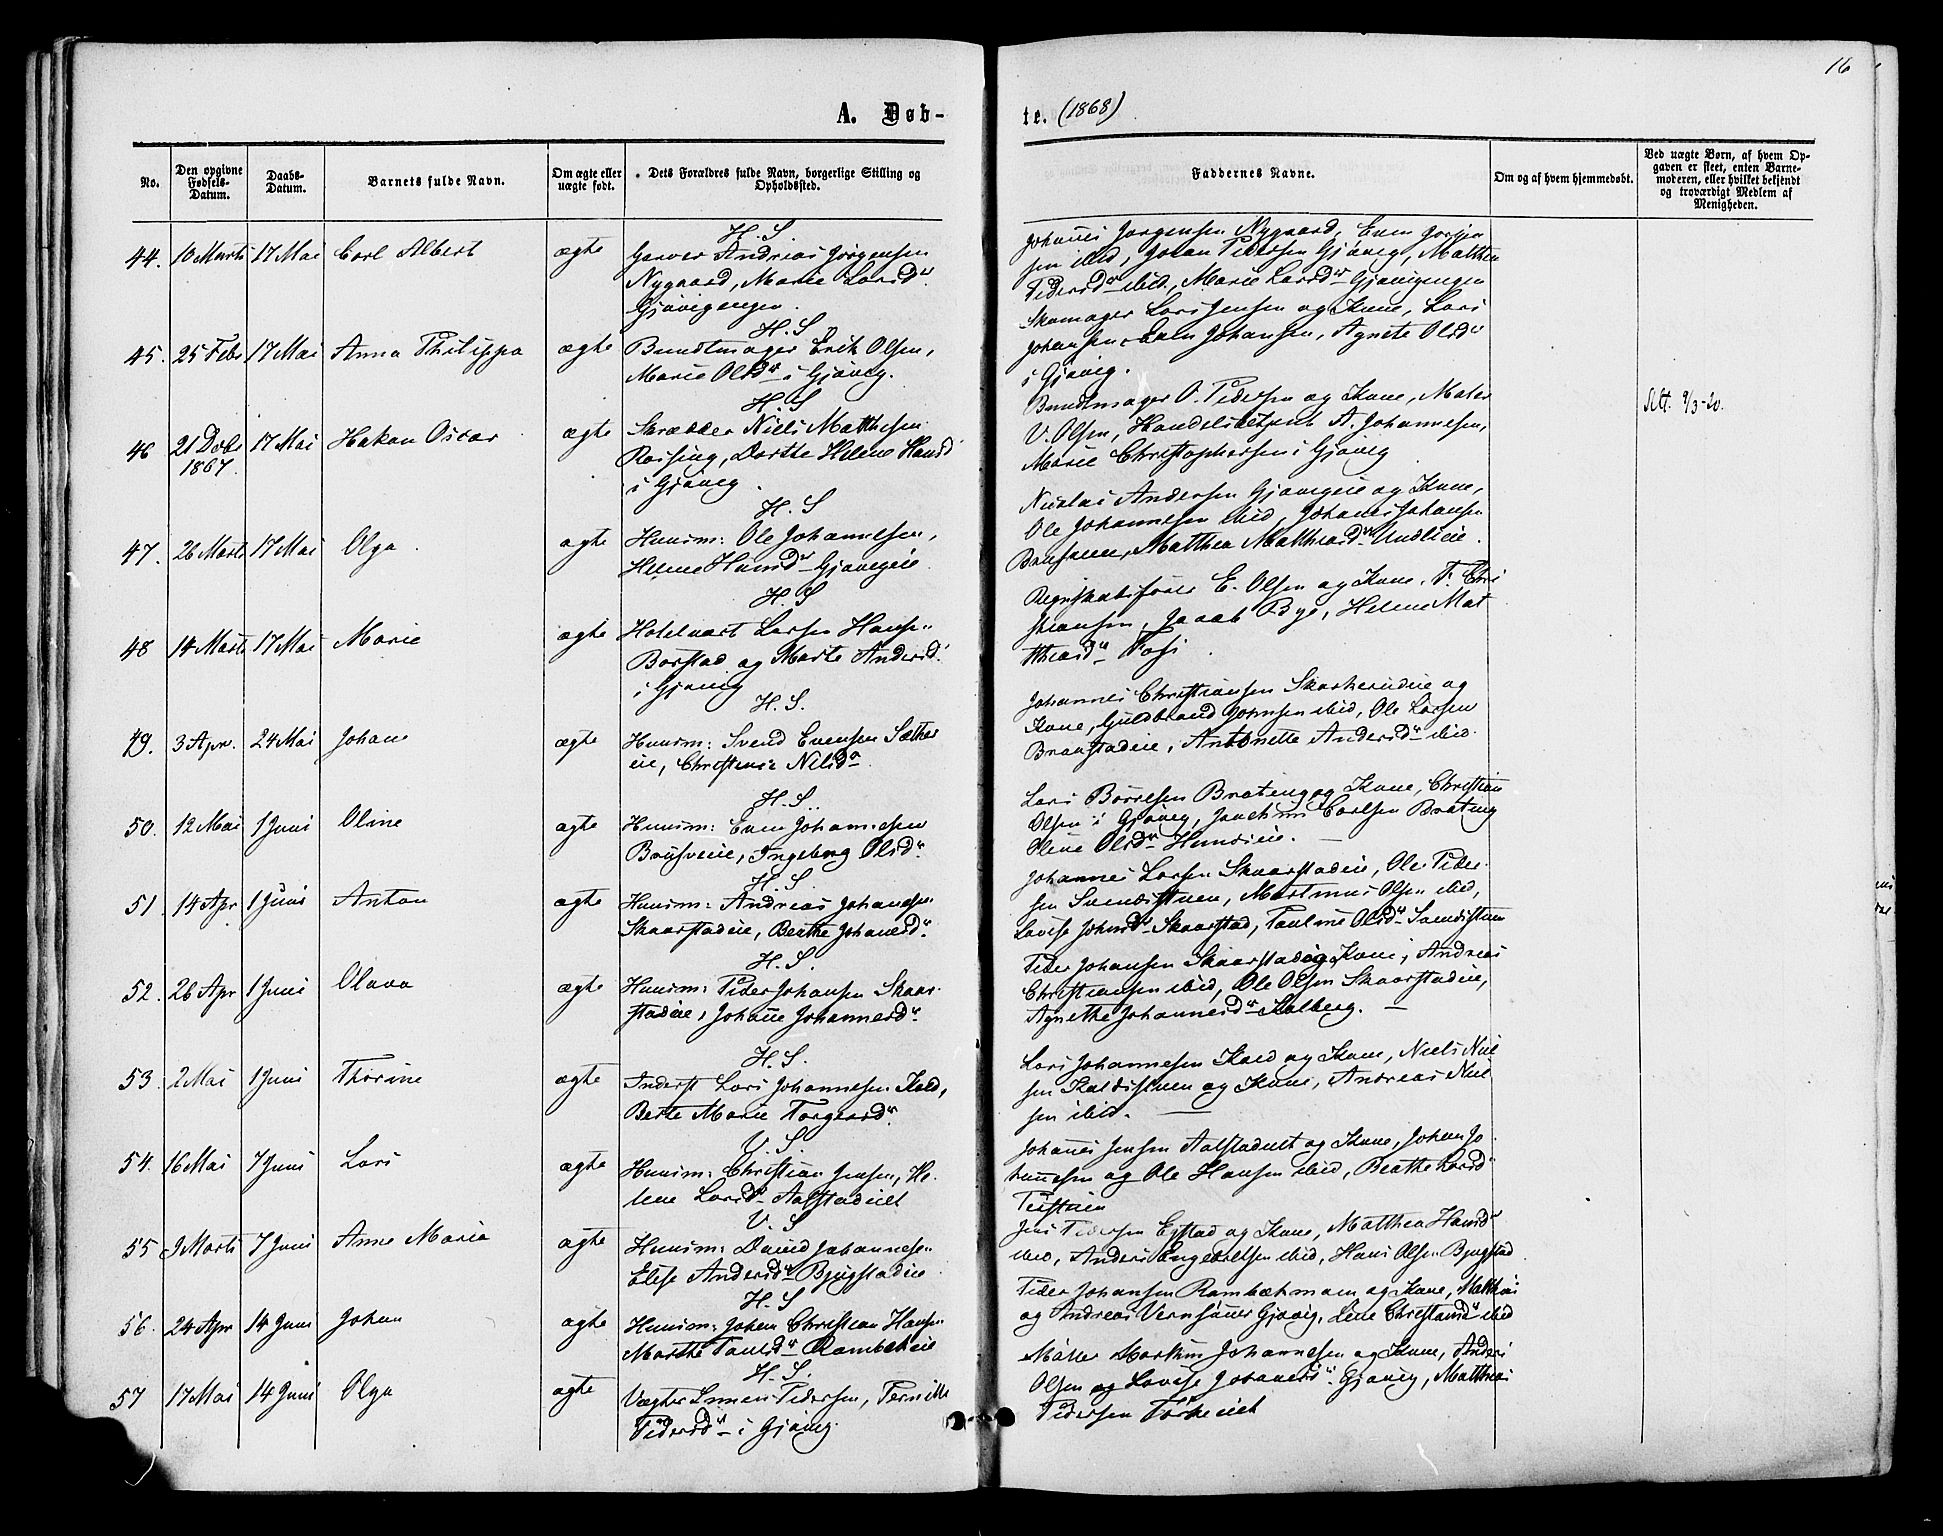 16
A. Døb-
te. (1868)
No.
Den opgivne Fødsels-Datum.
Daabs-Datum.
Barnets fulde Navn.
Om ægte eller uægte født.
Dets Forældres fulde Navn, borgerlige Stilling og Opholdssted.
Faddernes Navne.
Om og af hvem hjemmedøbt.
Ved uægte Børn, af hvem Op-
gaven er skeet, enten Barne-
moderen, eller hvilket bekjendt
og troværdigt Medlem af
Menigheden.
H. S.
44. 10 Marts 17 Mai Carl Albert ægte Garver Andreas Jörgensen
Nygaard, Marie Larsd.
Gjövigengen.
Johannes Jörgensen Nygaard, Even Jörgen
sen ibid, Johan Pedersen Gjövig, Matthea
Pedersd. ibid, Marie Larsd. Gjövigengen
H. S.
45. 25 Febr 17 Mai Anna Philippa ægte Bundtmager Erik Olsen,
Marie Olsd. i Gjövig.
Skomager Lars Jensen og Kone, Lars
Johansen, Even Johansen, Agnete Olsd
i Gjövig.
H. S
46 21 Dcbr 1867. 17 Mai Hakon Oscar ægte Skrædder Niels Matthesen
Rossing, Dorthe Helene Hansd
i Gjövig.
Bundtmager O. Pedersen og Kone, Maler
V. Olsen, Handelsbetjent A. Johannesen,
Marie Christophersen i Gjövig
Att. 9/3-20.
H. S
47. 26 Marts 17 Mai Olga ægte Huusm: Ole Johannesen,
Helene Hansd. Gjövigeie.
Nicolai Andersen Gjövigeie og Kone,
Ole Johannesen ibid, Johannes Johansen
Matthea Matthiasd.
H. S
48 14 Marts 17 Mai Marie ægte Hotelvært Larsen Hansen
Borstad og Marte Andersd.
i Gjövig
Regnskabsförer E. Olsen og Kone, F. Chri
stiansen, Jacob Bye, Helene Mat
thiasd.
H. S.
49. 3 Apr. 24 Mai Johan ægte Huusm: Svend Evensen Sæther
eie, Christense Nilsd.
Johannes Christiansen Skarherudeie og
Kone, Guldbrand Johnsen ibid, Ole Larsen
Braastadeie, Antonette Andersd. ibid.
H. S.
50. 12 Mai 1 Juni Oline ægte Huusm: Even Johannesen
Brusveeie, Ingeborg Olsd.
Lars Börresen Bröteng og Kone, Christian
Olsen i Gjövig, Joachim Carlsen Bröteng
Olene Olsd. Hunseie.
H. S.
51. 14 Apr 1 Juni Anton ægte Huusm: Andreas Johansen
Skaarstadeie, Berthe Johansd.
Johannes Larsen Skaarstadeie, Ole Peder
sen Svendstuen, Martinus Olsen ibid,
Lovise Johnsd. Skaarstad, Pauline Olsd. Svendstuen
H. S.
52. 26 Apr 1 Juni Olava ægte Huusm: Peder Johansen Skaar
stadeie, Johanne Johannesd.
Peder Johansen Skaarstad og Kone, Andreas
Christiansen ibid, Ole Olsen Skaarstadeie,
Agnethe Johannesd. Kalberg.
H. S.
53. 2 Mai 1 Juni Thorine ægte Inderst Lars Johannesen Kold,
Berte Marie Torgersd.
Lars Johannesen Kold og Kone, Niels Niel
sen Koldstuen og Kone, Andreas Niel
sen ibid.
V. S.
54. 16 Mai 7 Juni Lars ægte Huusm: Christian Jensen, He
lene Larsd. Aalstadeiet
Johannes Jensen Aalstadeiet og Kone, Johan Jo
hannesen og Ole Hansen ibid, Beathe Larsd.
V. S
55 9 Marts 7 Juni Anne Marie ægte Huusm: David Johannesen
Elise Andersd. Bjugstadeie
Jens Pedersen Egstad og Kone, Matthea Hansd.
ibid, Anders Engebretsen ibid, Hans Olsen Bjugstad
H. S
56. 24 Apr 14 Juni Johan ægte Huusm: Johan Christian Hansen
Marthe Paulsd. Rambekeie
Peder Johansen Rambekmoen og Kone, Matthias
og Andreas Gjövig, Lene Christiansd. ibid
H. S.
57 17 Mai 14 Juni Olga ægte Vægter Simen Pedersen, Pernille
Pedersd. i Gjövig
Möller Martin Johannesen og Kone, Anders
Olsen og Lovise Johansd. Gjövig, Matthias
Pedersen